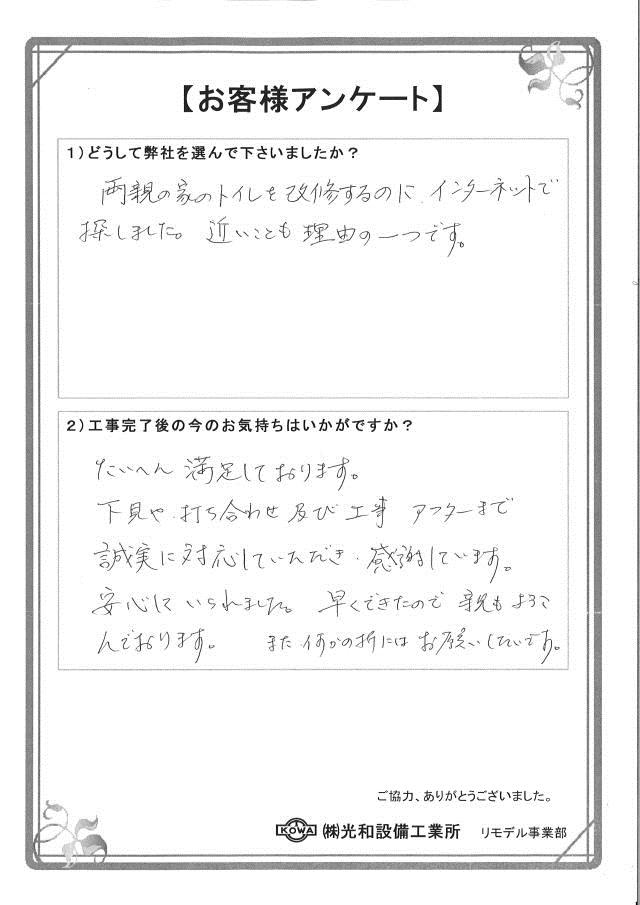 【お客様アンケート】
1)どうして弊社を選んで下さいましたか？
両親の家のトイレを改修するのに、インターネットで
探しました。近いことも理由の一つです。
2)工事完了後の今のお気持ちはいかがですか？
たいへん満足しております。
下見や、打ち合わせ及び工事 アフターまで
誠実に対応していただき、感謝しています。
安心していられました。早くできたので親もよろこ
んでおります。 また何かの折にはお願いしたいです。
ご協力、ありがとうございました。
KOWA ㈱光和設備工業所 リモデル事業部